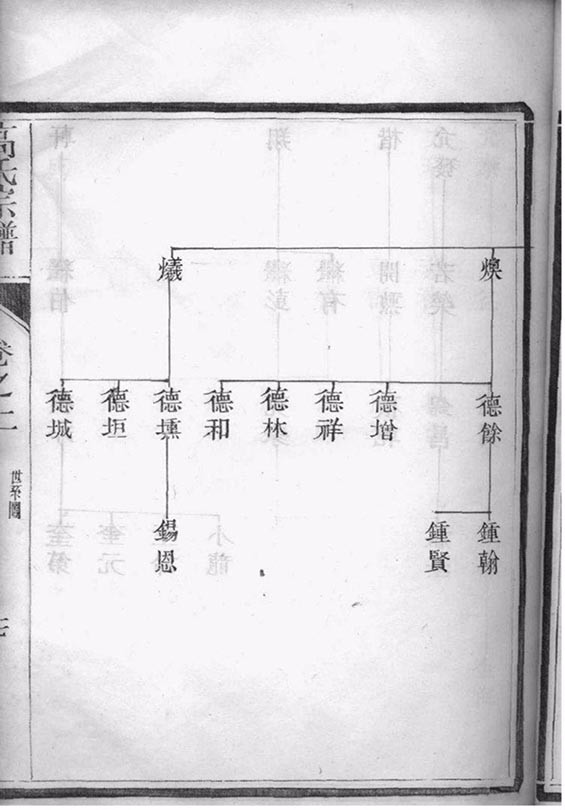 煥
㸇
德餘
德增
德祥
德林
德和
德壎
德垣
德城
鍾翰
鍾賢
錫恩
高氏宗譜
卷之二
世系圖